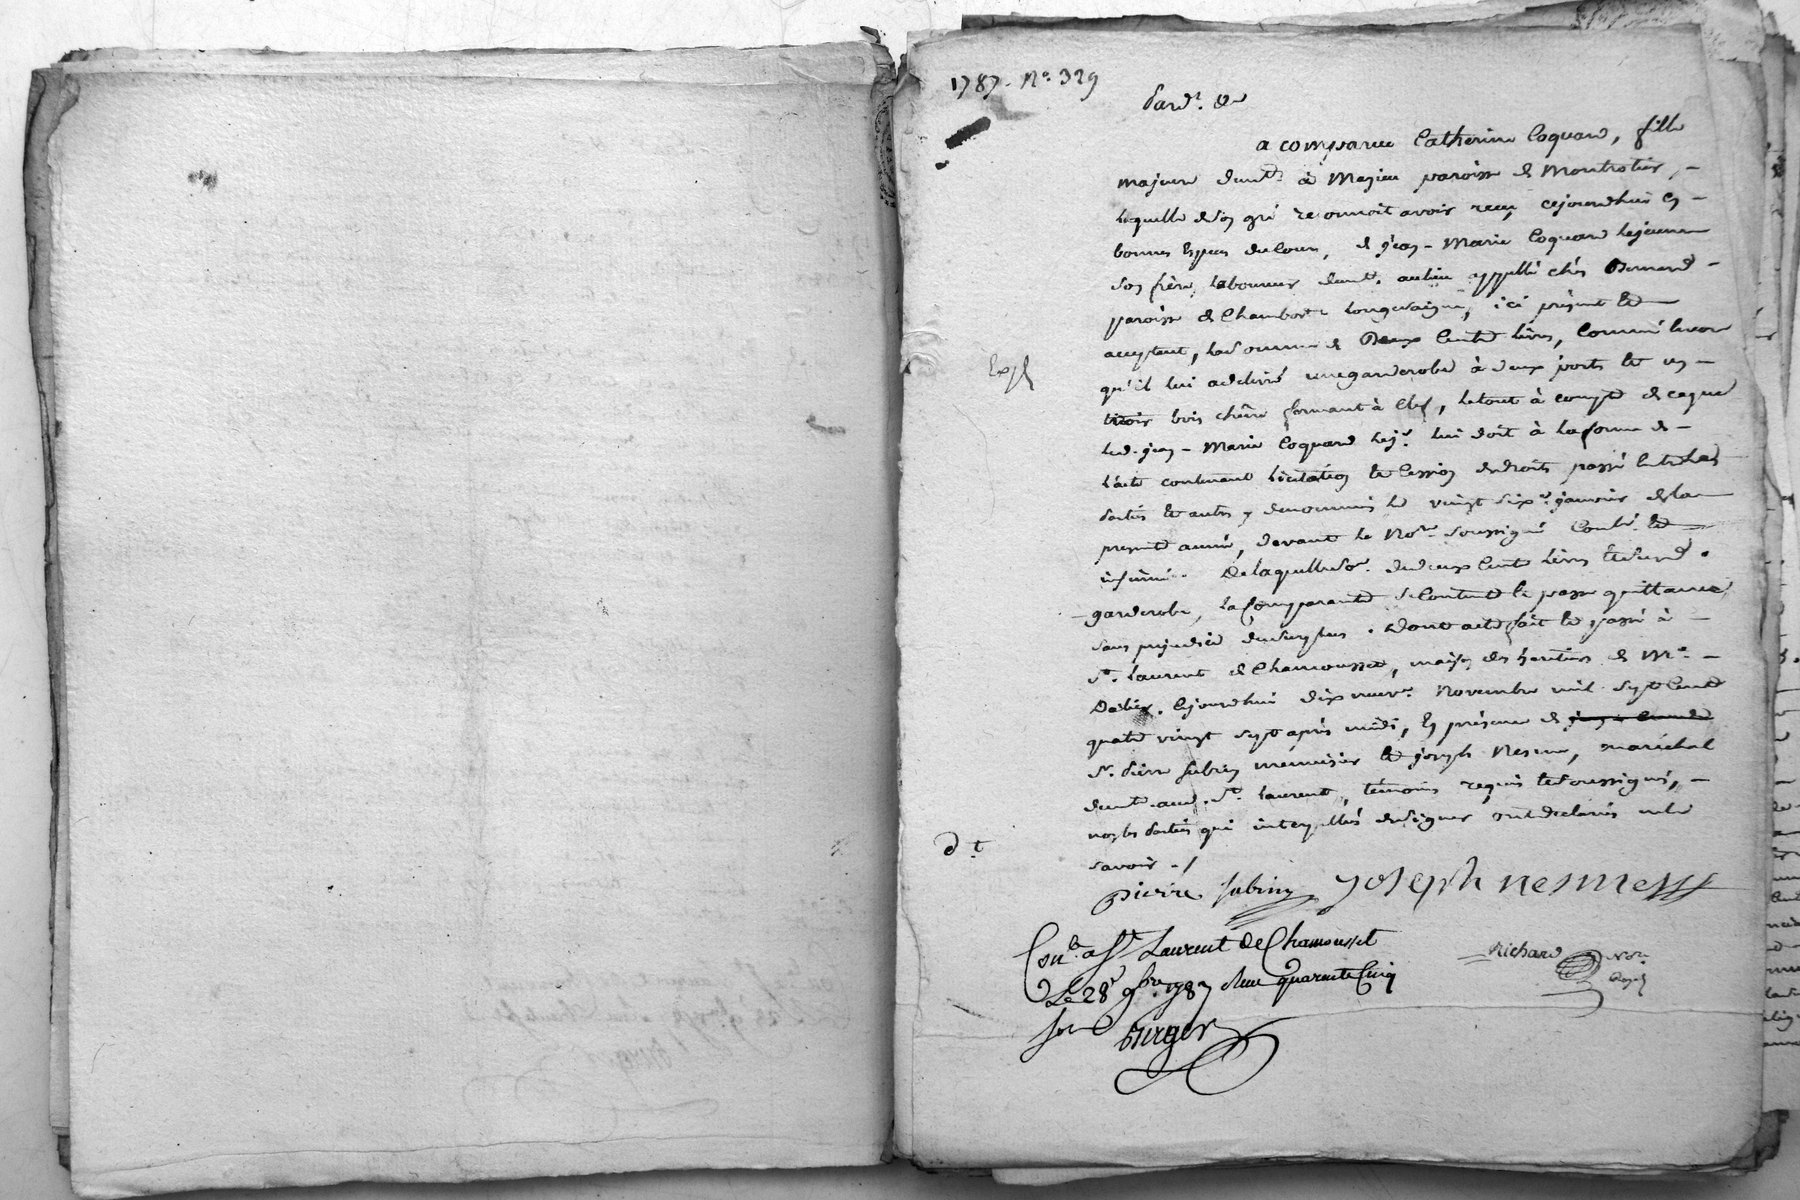 1787. No. 329
Pardt. &a
a comparue Catherine Coquard, fille
majeure demte. à Magieu paroisse de Montrotier, -
laquelle de son gré reconnoit avoir reçu cejourdhui en -
bonnes Espèces du Cours, de jean - Marie Coquard lejeune
son frère, laboureur demt. au lieu appellé chés Bernard -
paroisse de Chambost Longessaigne, ici présent et
acceptant, la somme de Deux Cents livres, Comme Encore
Expé
qu'il lui a delivré une garderobe à deux ports et un -
tiroir bois chêne fermant à Clef, le tout à compte de ce que
led. jean - Marie Coquard lej. lui doit à la forme de -
l'acte contenant licitation et Cession de droits passé entre les
parties et autres y denommés le vingt six janvier de la
presente année, devant le Nore. soussigné Contlé. et
insinué. De laquelle so. de deux Cents livres et de lad.
garderobe, la Comparante se Contente et passe quittance,
sans prejudice du surplus. Dont acte fait et passé à -
St. Laurent de Chamousset, maison des heritiers de Me. -
Cejourdhui dix neuve. Novembre mil sept Cent
quatre vingt sept après midi, En présence de
Sr. Pierre Subrin menuisier et joseph Nesme, maréchal
demt. aud. St. Laurent, témoins requis et soussignés, -
non les parties qui interpellées de signer ont declarés ne le
savoir ./
Pierre subrin joseph nesmess
Conlé. a St. Laurent De Chamousset
Le 28e. 9bre 1787 Reçu quarante Cinq
sols Berger
Richard Nore. Royal